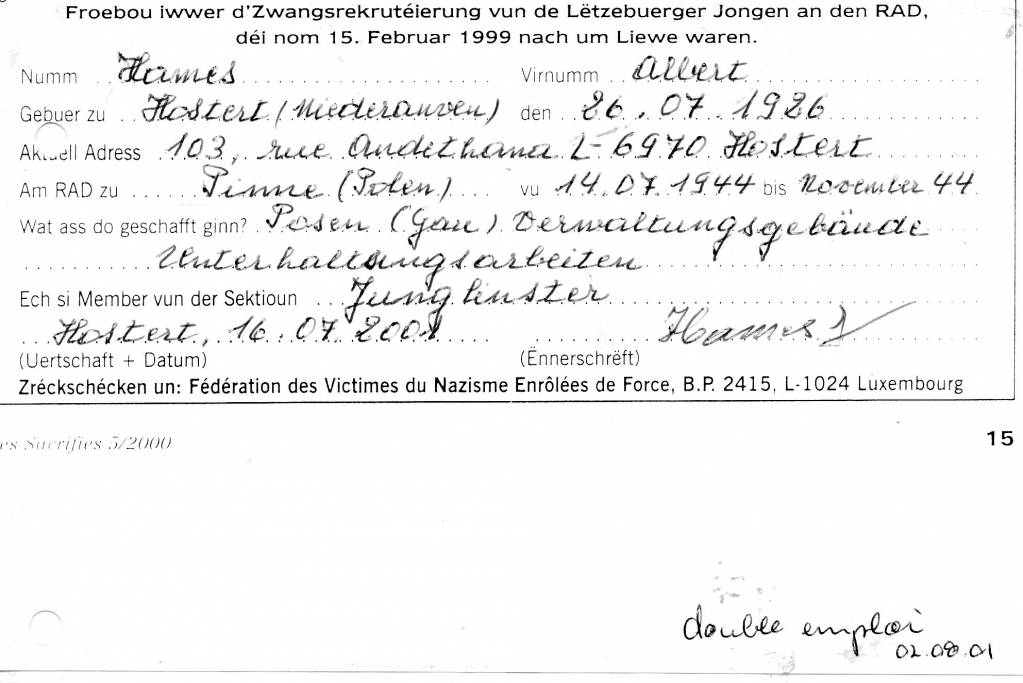 Froebou iwwer d'Zwangsrekrutéierung vun de Lëtzebuerger Jongen an den RAD,
déi nom 15. Februar 1999 nach um Liewe waren.
Numm Hames Virnumm Albert
Gebuer zu Hostert (Niederanven) den 26.07.1926
Aktuell Adress 103, rue Andethana L-6970 Hostert
Am RAD zu Pinne (Polen) vu 14.07.1944 bis November 44
Wat ass do geschafft ginn? Posen (Gau) Verwaltungsgebäude
Unterhaltungsarbeiten
Ech si Member vun der Sektioun Junglinster
Hostert, 16.07.2001 Hames
(Uertschaft + Datum) (Ënnerschrëft)
Zréckschécken un: Fédération des Victimes du Nazisme Enrôlées de Force, B.P. 2415, L-1024 Luxembourg
es Sacrifiés 5/2000 15
double emploi
02.08.01